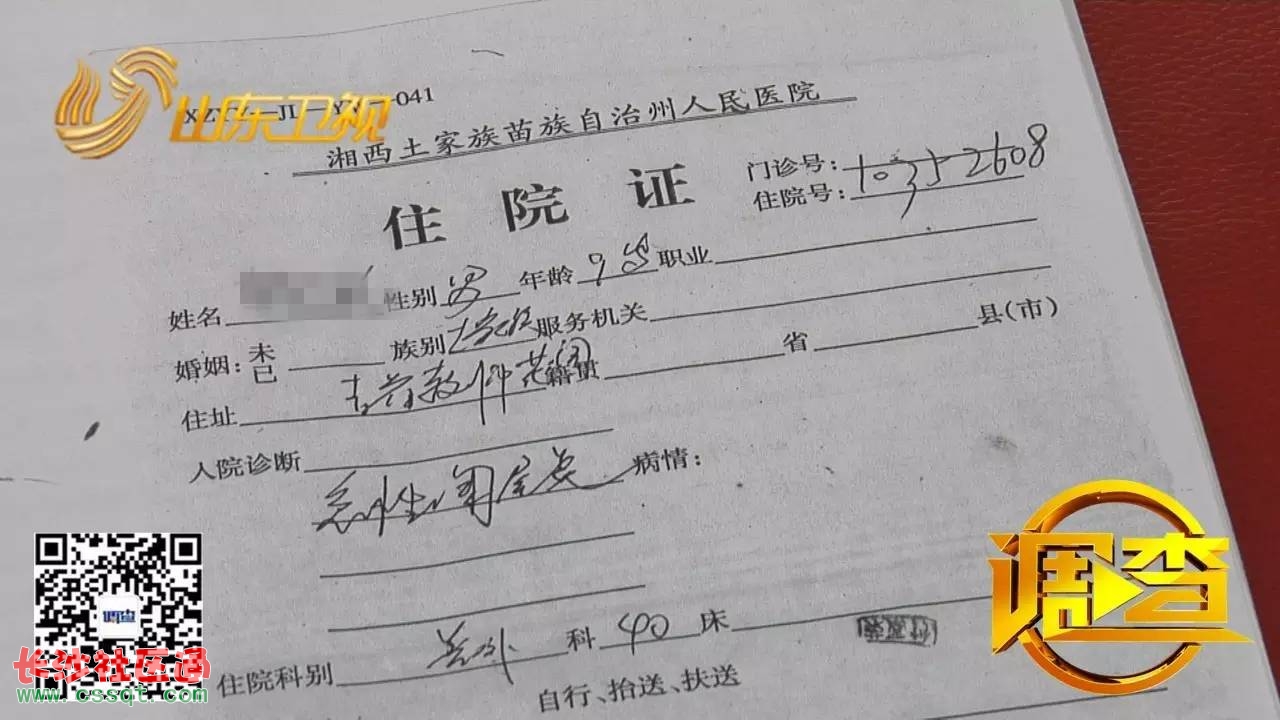 山东卫视
041
湘西土家族苗族自治州人民医院
住院证
门诊号:
住院号: 10352608
姓名 性别 男 年龄 9岁 职业
婚姻: 未 已 族别 土家族 服务机关
住址 吉首教师花园 籍贯 省 县(市)
入院诊断
急性阑尾炎 病情:
住院科别 普外 科 40 床
自行、抬送、扶送
调查
调查
长沙社区通
www.cssqt.com